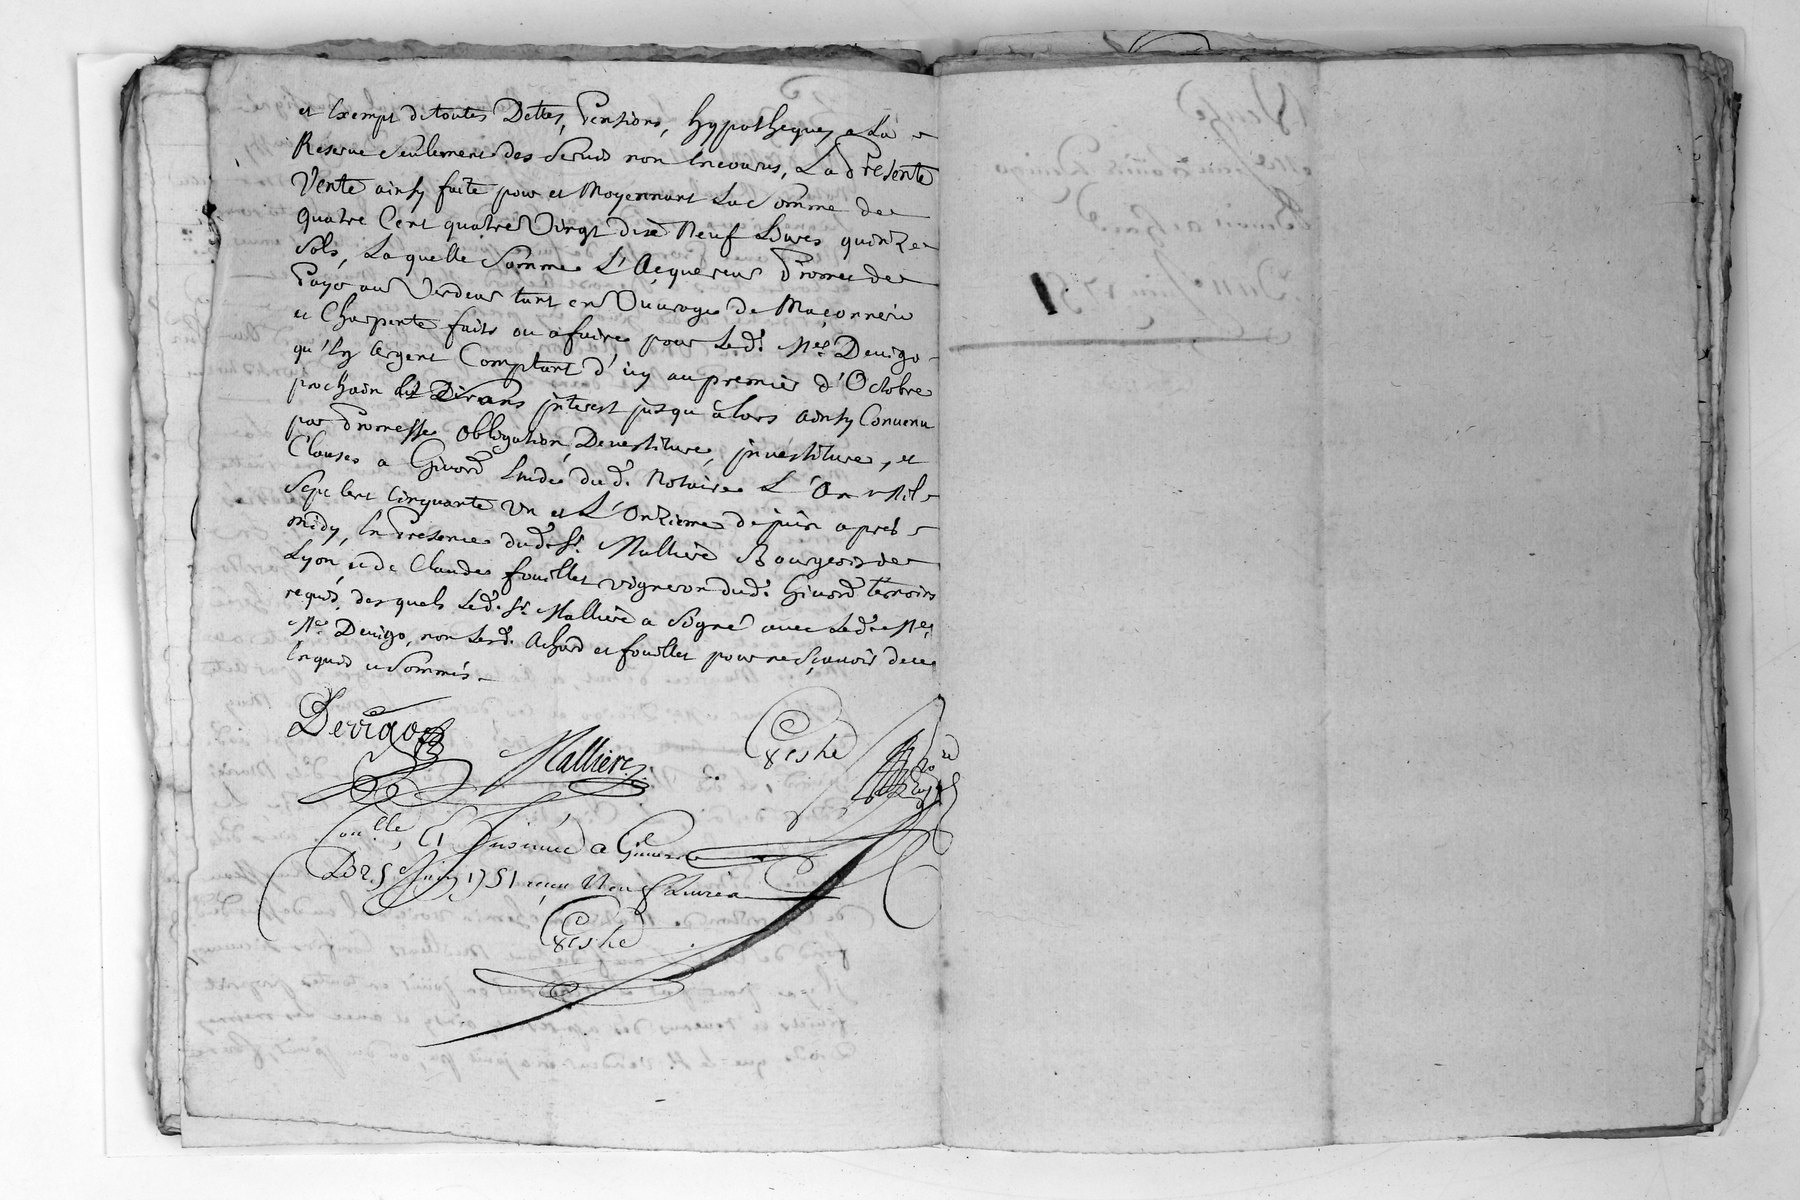 et Exempt de toutes Dettes, Pensions, hypotheques a La
Reserve seulement des servis non Encourus, La Presente
Vente ainsy faite pour et Moyennant La Somme de
quatre Cent quatre Vingt dixe Neuf Livres quinze
Sols, La quelle Somme L'Acquereur Promet de
Payé au Vendeur tant en Ouvrage de Maçonnerie
et Charpente faits ou a faire pour Led. Me. Devigo
qu'En Argent Comptant d'icy au premier d'Octobre
prochain interest jusqu'alors ainsy Convenu
par Promesse Obligation, Devestiture, investiture, et
Clauses a Givord Etude dud. Notaire L'An Mil
Sept Cent Cinquante Un et L'Onzieme de juin apres
midy, En Presence dud. Sr. Malliere Bourgeois de
Lyon et de Claude fouillet vigneron dud. Givord temoins
requis, des quels Led. Sr. Malliere a Signé avec Led. Me.
Me. Devigo, non Lesd. Achard et fouillet pour ne Sçavoir de ce
Enquis et Sommés.
Devigo
Malliere
Geshe
Conlle. Et Insinué a Givord
Le 25 Juin 1751 reçu Neuf Livres
Geshe